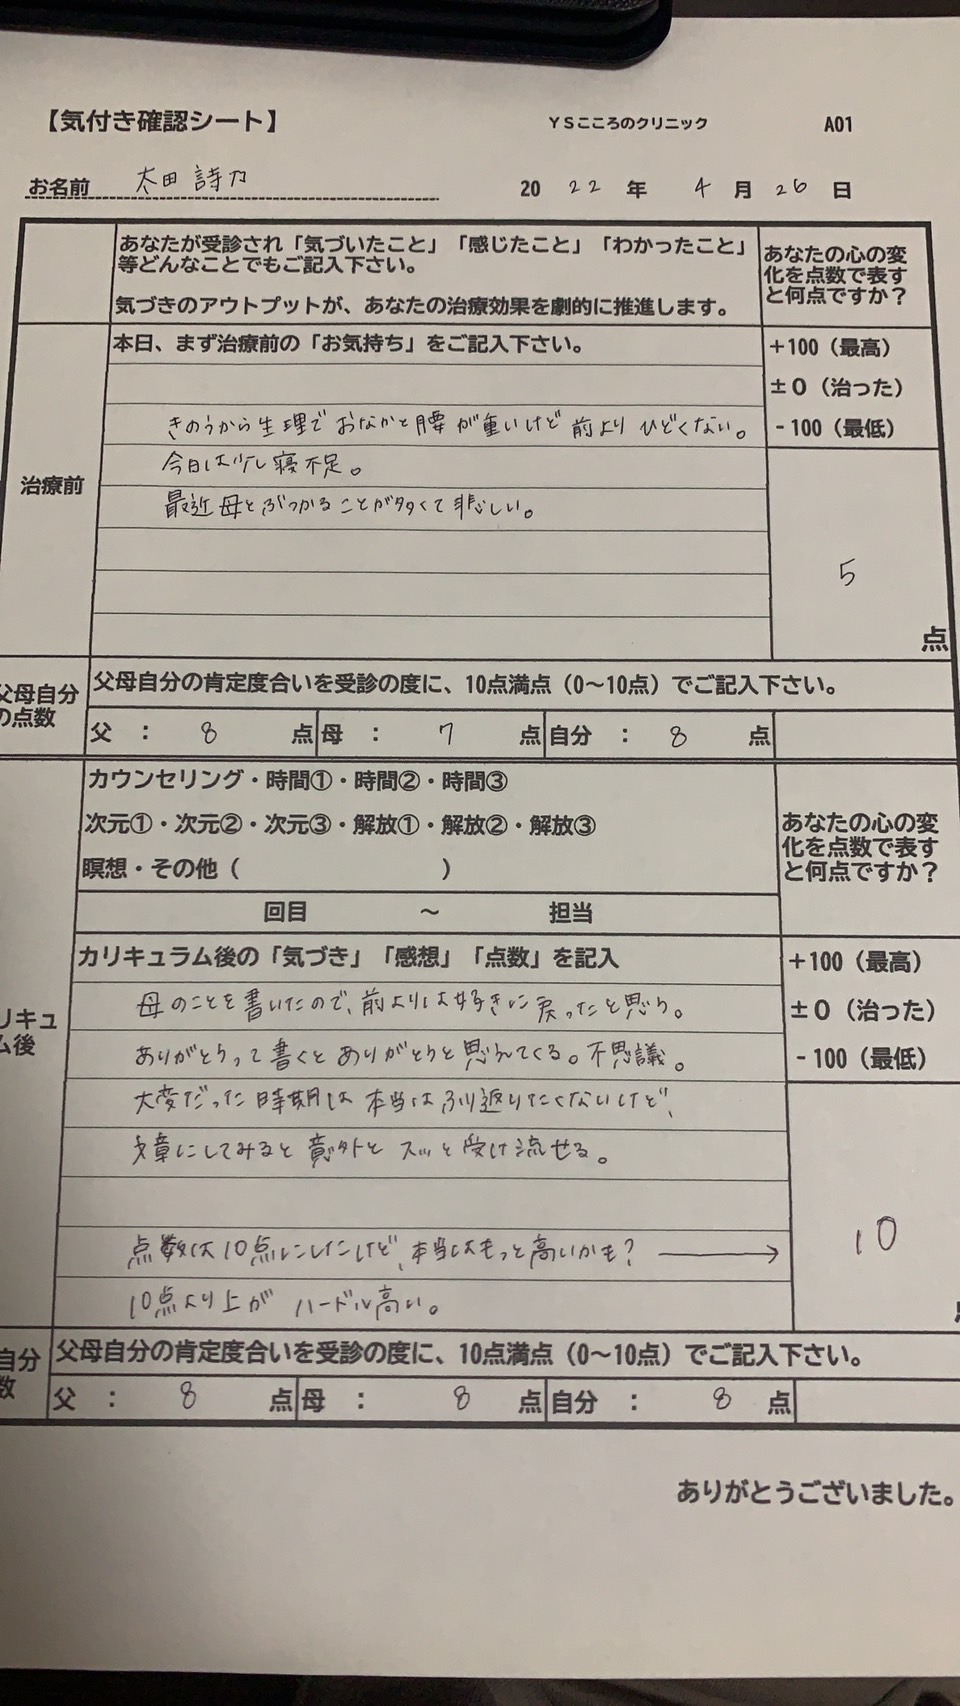 【気付き確認シート】 YSこころのクリニック A01
お名前 太田 詩乃 20 22 年 4 月 26 日
あなたが受診され「気づいたこと」「感じたこと」「わかったこと」
等どんなことでもご記入下さい。
気づきのアウトプットが、あなたの治療効果を劇的に推進します。
あなたの心の変
化を点数で表す
と何点ですか？
治療前
本日、まず治療前の「お気持ち」をご記入下さい。
きのうから生理でおなかと腰が重いけど前よりひどくない。
今日は少し寝不足。
最近母とぶつかることが多くて悲しい。
+100（最高）
±0（治った）
-100（最低）
5
点
父母自分
の点数
父母自分の肯定度合いを受診の度に、10点満点（0～10点）でご記入下さい。
父 ： 8 点 母 ： 7 点 自分 ： 8 点
カウンセリング・時間①・時間②・時間③
次元①・次元②・次元③・解放①・解放②・解放③
瞑想・その他（ ）
回目 ～ 担当
あなたの心の変
化を点数で表す
と何点ですか？
リキュ
ム後
カリキュラム後の「気づき」「感想」「点数」を記入
母のことを書いたので、前よりは好きに戻ったと思う。
ありがとうって書くとありがとうと思えてくる。不思議。
大変だった時期は本当はふり返りたくないけど、
文章にしてみると意外とスッと受け流せる。
点数は10点にしたけど、本当はもっと高いかも？ →
10点より上がハードル高い。
+100（最高）
±0（治った）
-100（最低）
10
自分
数
父母自分の肯定度合いを受診の度に、10点満点（0～10点）でご記入下さい。
父 ： 8 点 母 ： 8 点 自分 ： 8 点
ありがとうございました。